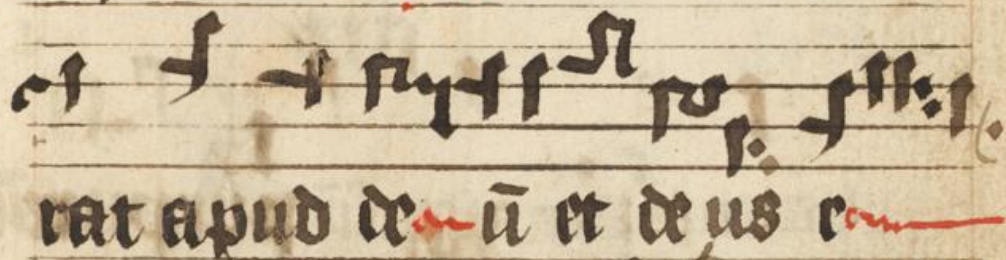 rat apud de ū et deus e